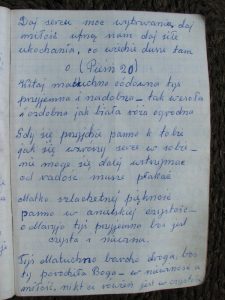 Daj sercu moc wytrwania, daj
miłość ufną nam daj siłę
ukochania, co wiedzie dusze tam
o (Pieśń 20)
Witaj matuchno cudowna tyś
przyjemna i nadobna – tak wesoła
i ozdobna jak biała róża ogrodna
Gdy się przyjdzie panno k tobie
jak się wzrowy serce w sobie –
nie mogę się dalej wstrzymać
od radość muszę płakać
Matko szlachetnej piękność
panno w anielskiej czystość –
o Maryjo tyś przyjemna boś jest
czysta i
Tyś Matuchno bardzo droga, boś
ty porodziła Boga – w
miłość, nikt ci rowien jest w czystość